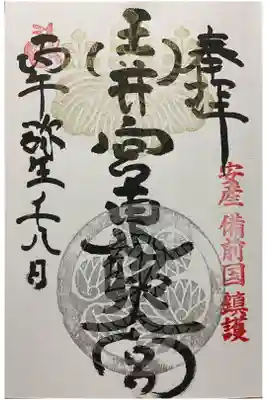 奉拝
安産 備前国 鎮護
玉井宮東照宮
丙午 弥生 十八日